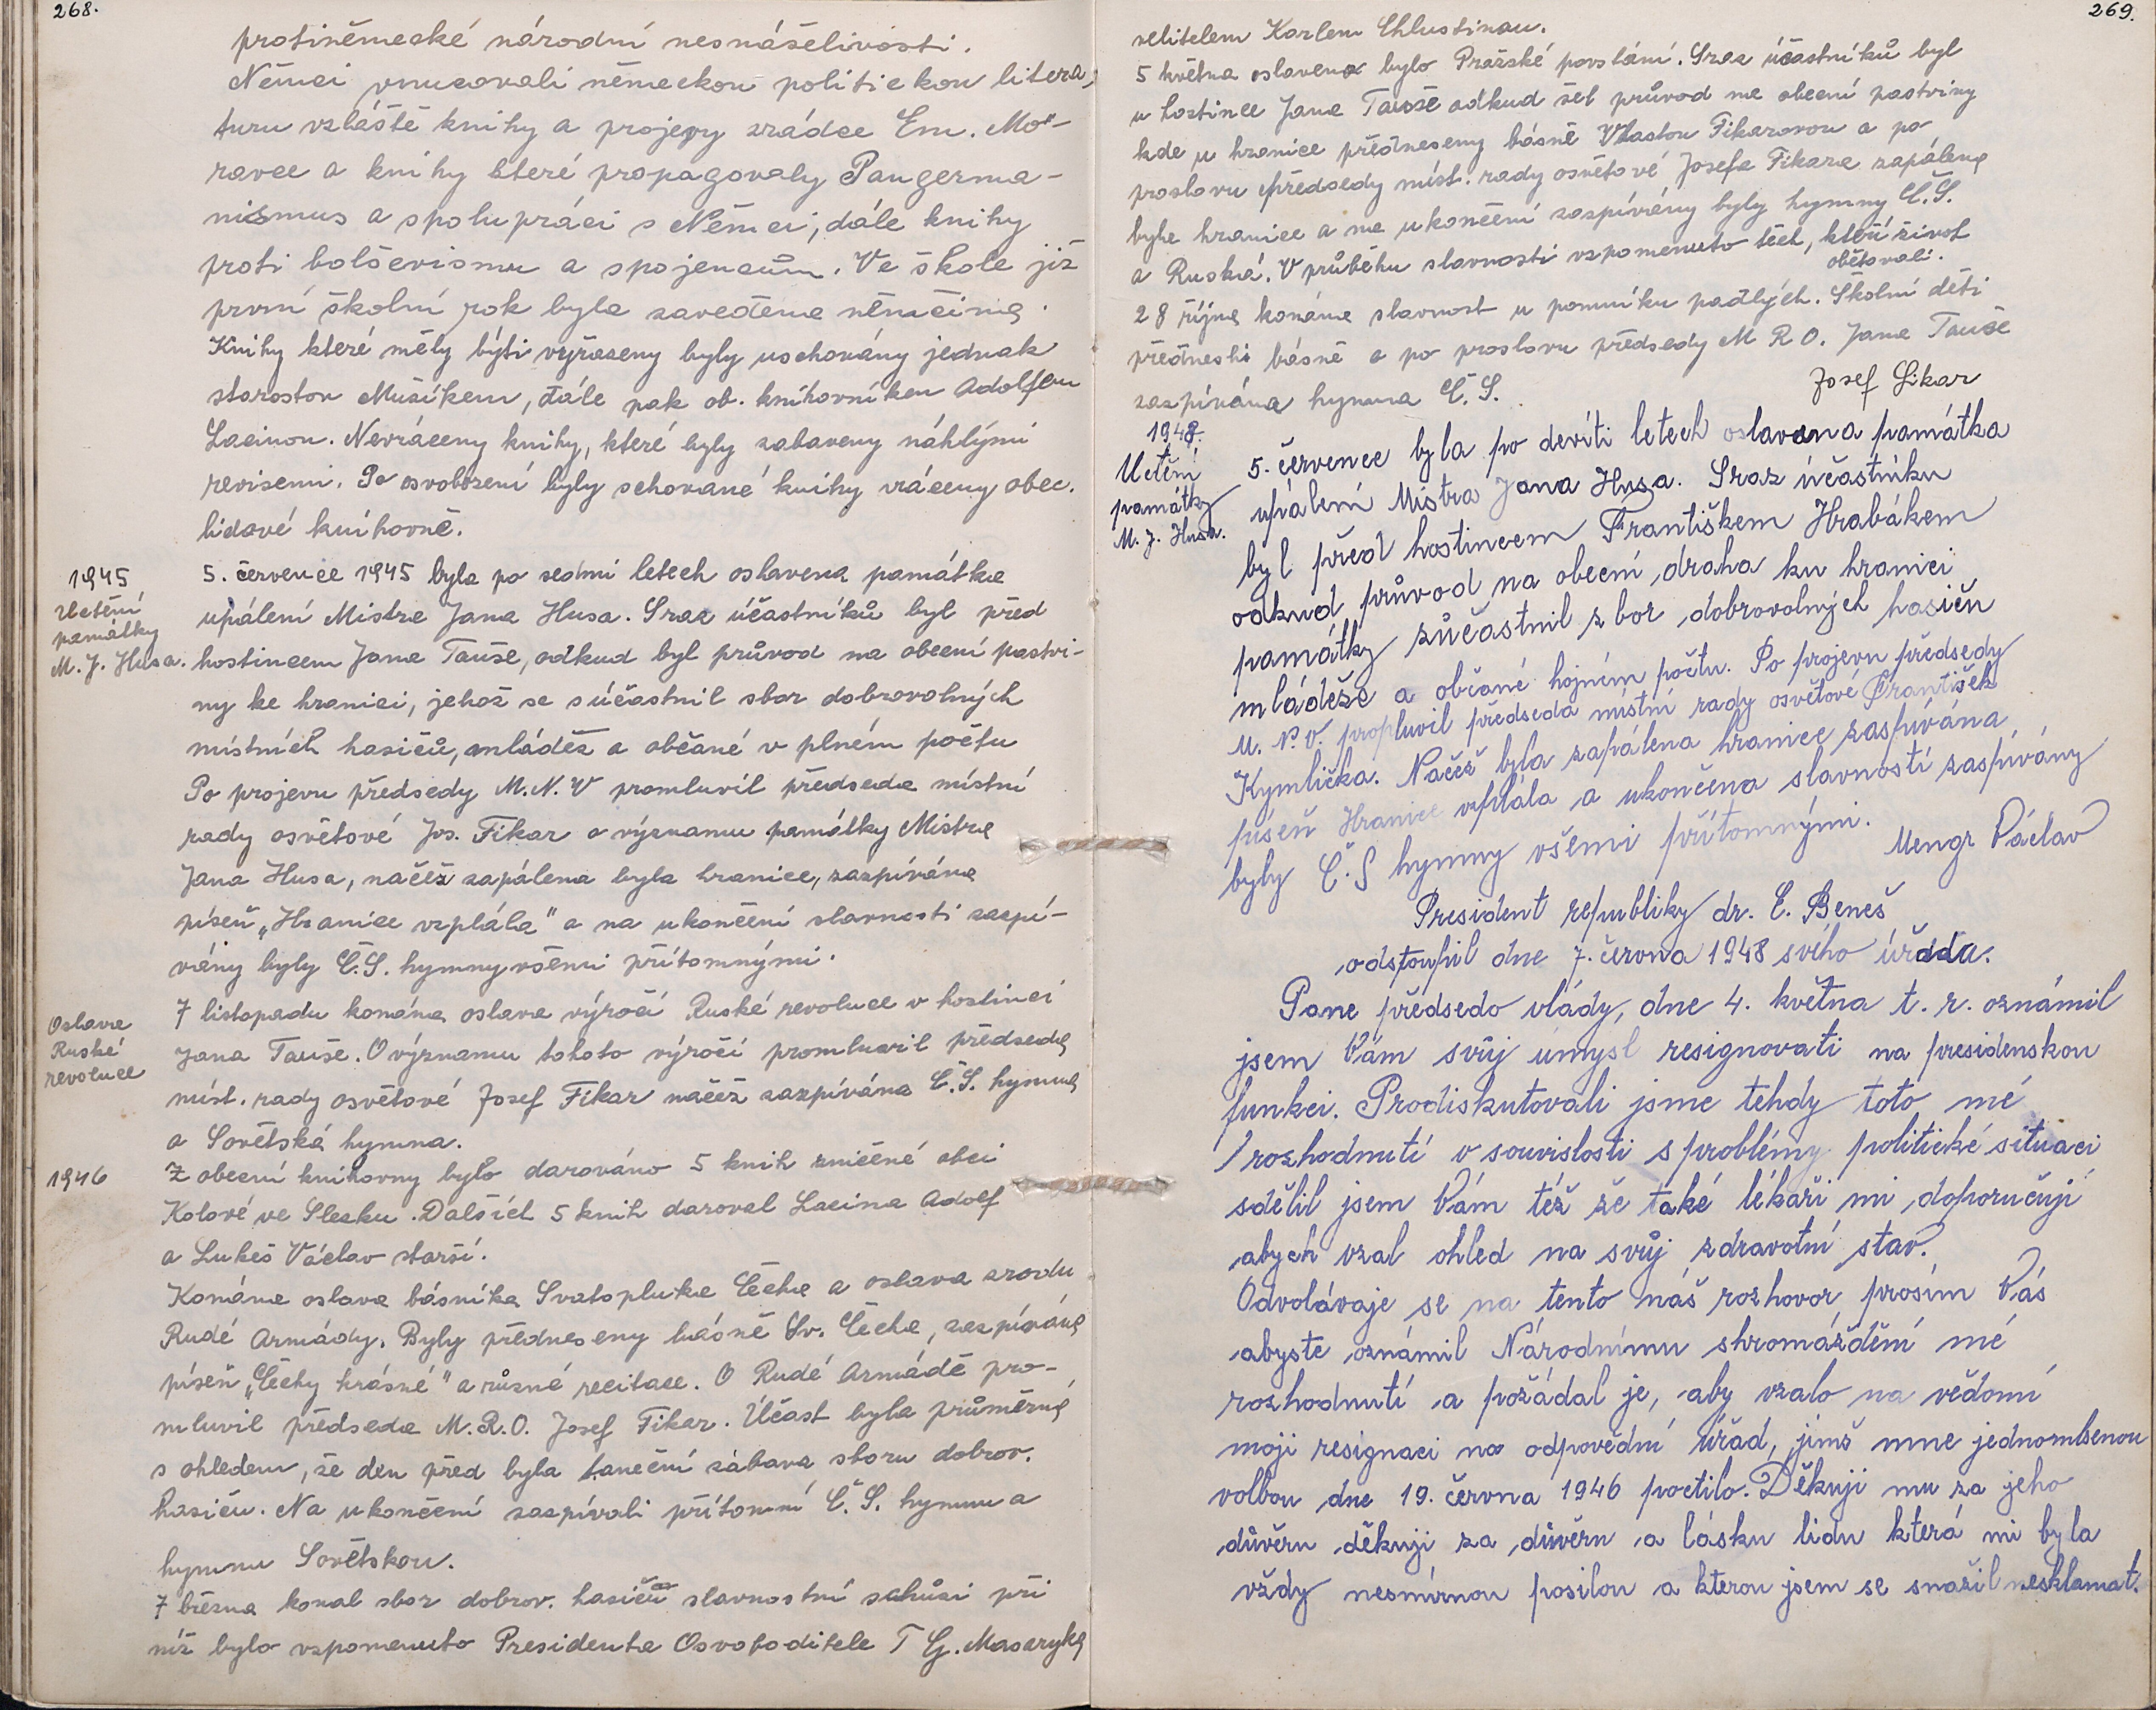 268.
protiněmecké národní nesnášelivosti.
Němci vnucovali německou politickou litera,
turu vzláště knihy a projevy zrádce Em. Mo-
ravce a knihy které propagovaly Pangerma-
nismus a spolupráci s Němci, dále knihy
proti bolševismu a spojencům. Ve škole již
první školní rok byla zavedena němčina.
Knihy které měly býti vyřazeny byly uschovány jednak
starostou Mušíkem, dále pak ob. knihovníkem Adolfem
Lacinou. Nevráceny knihy, které byly zabaveny náhlými
revisemi. Po osvobození byly schované knihy vráceny obec.
lidové knihovně.
1945
Uctění
památky
M. J. Husa.
5. července 1945 byla po sedmi letech oslavena památka
upálení Mistra Jana Husa. Sraz účastníků byl před
hostincem Jana Tauše, odkud byl průvod na obecní pastvi-
ny ke hranici, jehož se súčastnil sbor dobrovolných
místních hasičů, mládež a občané v plném počtu
Po projevu předsedy M.N.V promluvil předseda místní
rady osvětové Jos. Fikar o významu památky Mistra
Jana Husa, načež zapálena byla hranice, zazpívána
píseň „Hranice vzplála" a na ukončení slavnosti zazpí-
vány byly Č.S. hymny všemi přítomnými.
Oslava
Ruské
revoluce
7 listopadu konána oslava výročí Ruské revoluce v hostinci
Jana Tauše. O významu tohoto výročí promluvil předseda
míst. rady osvětové Josef Fikar načež zazpívána Č.S. hymna
a Sovětská hymna.
1946
Z obecní knihovny bylo darováno 5 knih zničené obci
Kotové ve Slezku. Dalších 5 knih daroval Lacina Adolf
a Lukeš Václav starší.
Konána oslava básníka Svatopluka Čecha a oslava zrodu
Rudé Armády. Byly předneseny básně Sv. Čecha, zazpívána
píseň „Čechy krásné" a různé recitace. O Rudé Armádě pro-
mluvil předseda M.R.O. Josef Fikar. Účast byla průměrná
s ohledem, že den před byla taneční zábava sboru dobrov.
hasičů. Na ukončení zazpívali přítomní Č.S. hymnu a
hymnu Sovětskou.
7 března konal sbor dobrov. hasičů slavnostní schůzi při
níž bylo vzpomenuto Presidenta Osvoboditele T G. Masaryka
269.
velitelem Karlem Chlustinou.
5 května oslaveno bylo Pražské povstání. Sraz účastníků byl
u hostince Jana Tauše odkud šel průvod na obecní pastviny
kde u hranice předneseny básně Vlastou Fikarovou a po
proslovu předsedy míst. rady osvětové Josefa Fikara zapálena
byla hranice a na ukončení zazpívány byly hymny Č.S.
a Ruská. V průběhu slavnosti vzpomenuto těch, kteří život
obětovali.
28 října konána slavnost u pomníku padlých. Školní děti
přednesli básně a po proslovu předsedy M R O. Jana Tauše
zazpívána hymna Č.S.
Josef Fikar
1948.
Uctění
památky
M. J. Husa.
5. července byla po devíti letech oslavena památka
upálení Mistra Jana Husa. Sraz účastníku
byl před hostincem Františkem Hrabákem
odkud průvod na obecní draha ku hranici
památky zůčastnil zbor dobrovolných hasičů
mládeže a občané hojném počtu. Po projevu předsedy
M. N. V. propluvil předseda místní rady osvětové František
Kymlička. Načež byla zapálena hranice zaspívána
píseň Hranice vzplála a ukončena slavností zaspívány
byly Č.S hymny všemi přítomnými.
Mengr Václav
President republiky dr. E. Beneš
odstoupil dne 7. června 1948 svého úřadu.
Pane předsedo vlády, dne 4. května t. r. oznámil
jsem Vám svůj úmysl resignovati na presidenskou
funkci. Prodiskutovali jsme tehdy toto mé
rozhodnutí v souvislosti s problémy politické situaci
sdělil jsem Vám též že také lékaři mi doporučují
abych vzal ohled na svůj zdravotní stav.
Odvolávaje se na tento náš rozhovor prosím Vás
abyste oznámil Národnímu shromáždění mé
rozhodnutí a požádal je, aby vzalo na vědomí
moji resignaci na odpovědní úřad, jímž mne jednomlsenou
volbou dne 19. června 1946 poctilo. Děkuji mu za jeho
důvěru děkuji za důvěru a lásku lidu která mi byla
vždy nesmírnou posilou a kterou jsem se snažil nesklamat.